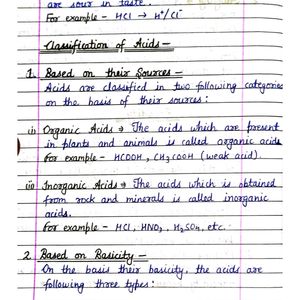 are sour in taste.
For example - HCl → H⁺/Cl⁻
Classification of Acids -
1. Based on their Sources -
Acids are classified in two following categories
on the basis of their sources:
i) Organic Acids ⇒ The acids which are present
in plants and animals is called organic acids
For example - HCOOH, CH₃COOH (weak acid).
ii) Inorganic Acids ⇒ The acids which is obtained
from rock and minerals is called inorganic
acids.
For example - HCl, HNO₃, H₂SO₄, etc.
2. Based on Basicity -
On the basis their basicity, the acids are
following three types: